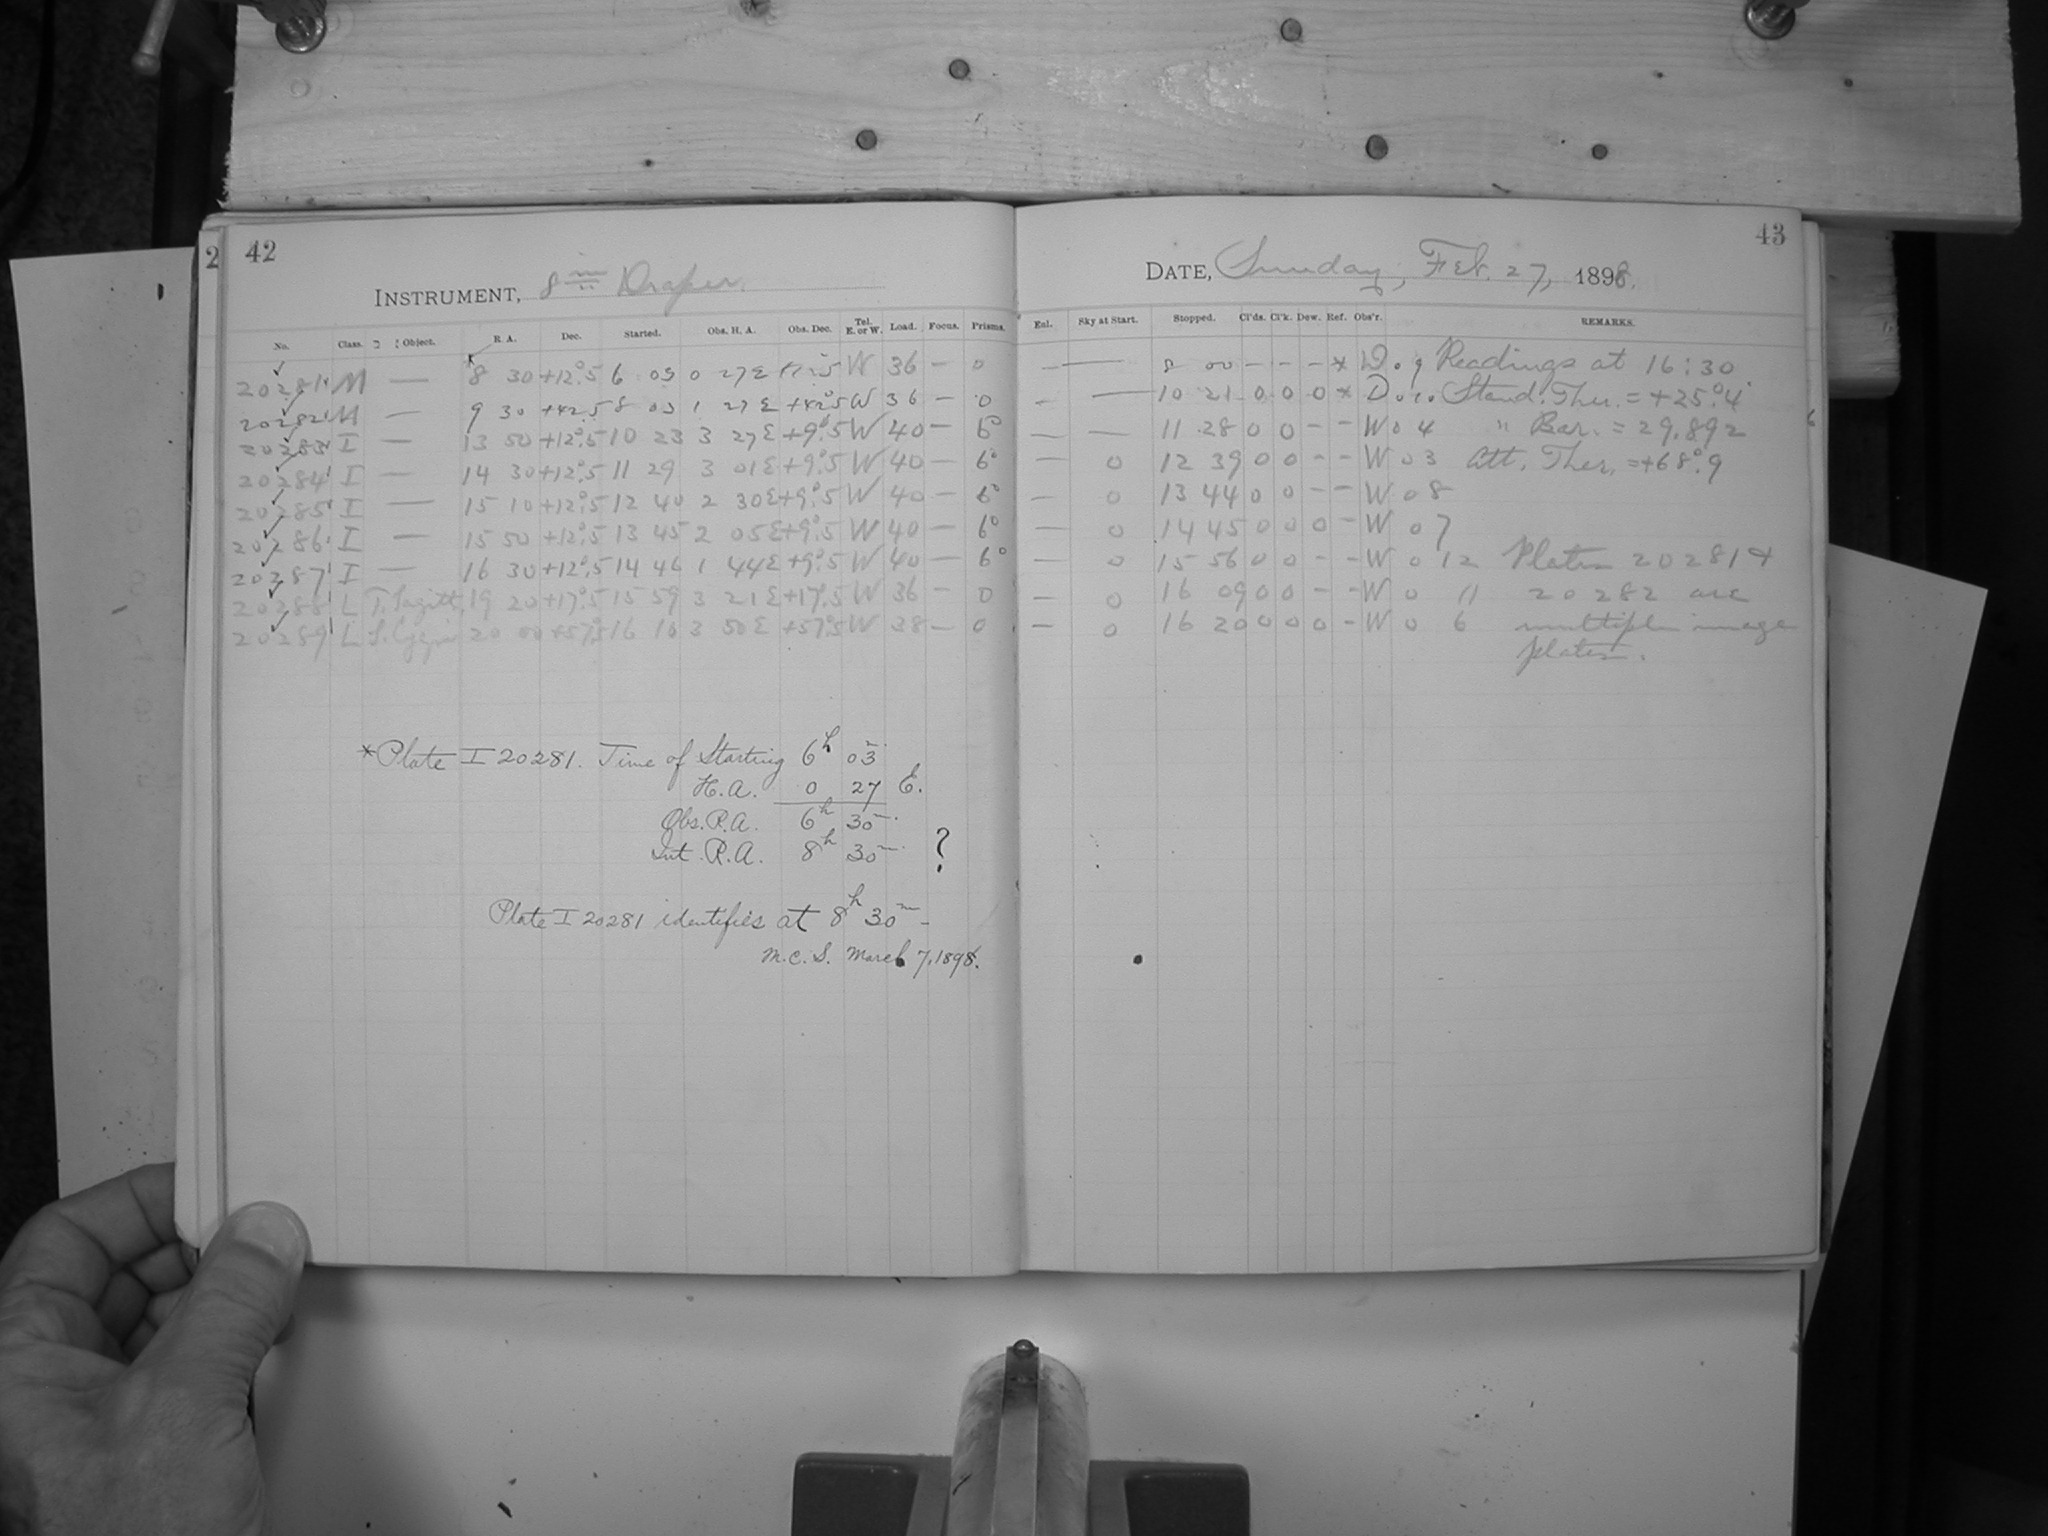 2 42
INSTRUMENT, 8 in Draper.
No. Class. Object. R. A. Dec. Started. Obs. H. A. Obs. Dec. Tel. E. or W. Load. Focus. Prisms.
20281 M — 8 30 +12°.5 6 03 0 27 E W 36 — 0
20282 M — 9 30 +42.5 8 03 1 27 E +42°.5 W 36 — 0
20283 I — 13 50 +12°.5 10 23 3 27 E +9°.5 W 40 — 6°
20284 I — 14 30 +12°.5 11 29 3 01 E +9°.5 W 40 — 6°
20285 I — 15 10 +12°.5 12 40 2 30 E +9°.5 W 40 — 6°
20286 I — 15 50 +12°.5 13 45 2 05 E +9°.5 W 40 — 6°
20287 I — 16 30 +12°.5 14 46 1 44 E +9°.5 W 40 — 6°
20288 L T. Sagitt. 19 20 +17°.5 15 59 3 21 E +17°.5 W 36 — 0
20289 L S. Cygni 20 00 +57°.5 16 10 3 50 E +57°.5 W 38 — 0
*Plate I 20281. Time of Starting 6h 03m
H.A. 0 27 E.
Obs. R.A. 6h 30m.
Int. R.A. 8h 30m. ?
Plate I 20281 identifies at 8h 30m —
M.C.S. March 7, 1898.
43
DATE, Sunday, Feb. 27, 1898.
Enl. Sky at Start. Stopped. Cl'ds. Cl'k. Dew. Ref. Obs'r. REMARKS.
— — 8 00 — — — * D. 09 Readings at 16:30
— — 10 21 0 0 0 * D. 010 Stand. Ther. = +25°.4
— — 11 28 0 0 — — W 04 " Bar. = 29.892
— 0 12 39 0 0 — — W 03 Att. Ther. = +68°.9
— 0 13 44 0 0 — — W 08
— 0 14 45 0 0 0 — W 07
— 0 15 56 0 0 — — W 0 12 Plates 20281 &
— 0 16 09 0 0 — — W 0 11 20282 are
— 0 16 20 0 0 0 — W 0 6 multiple image
plates.